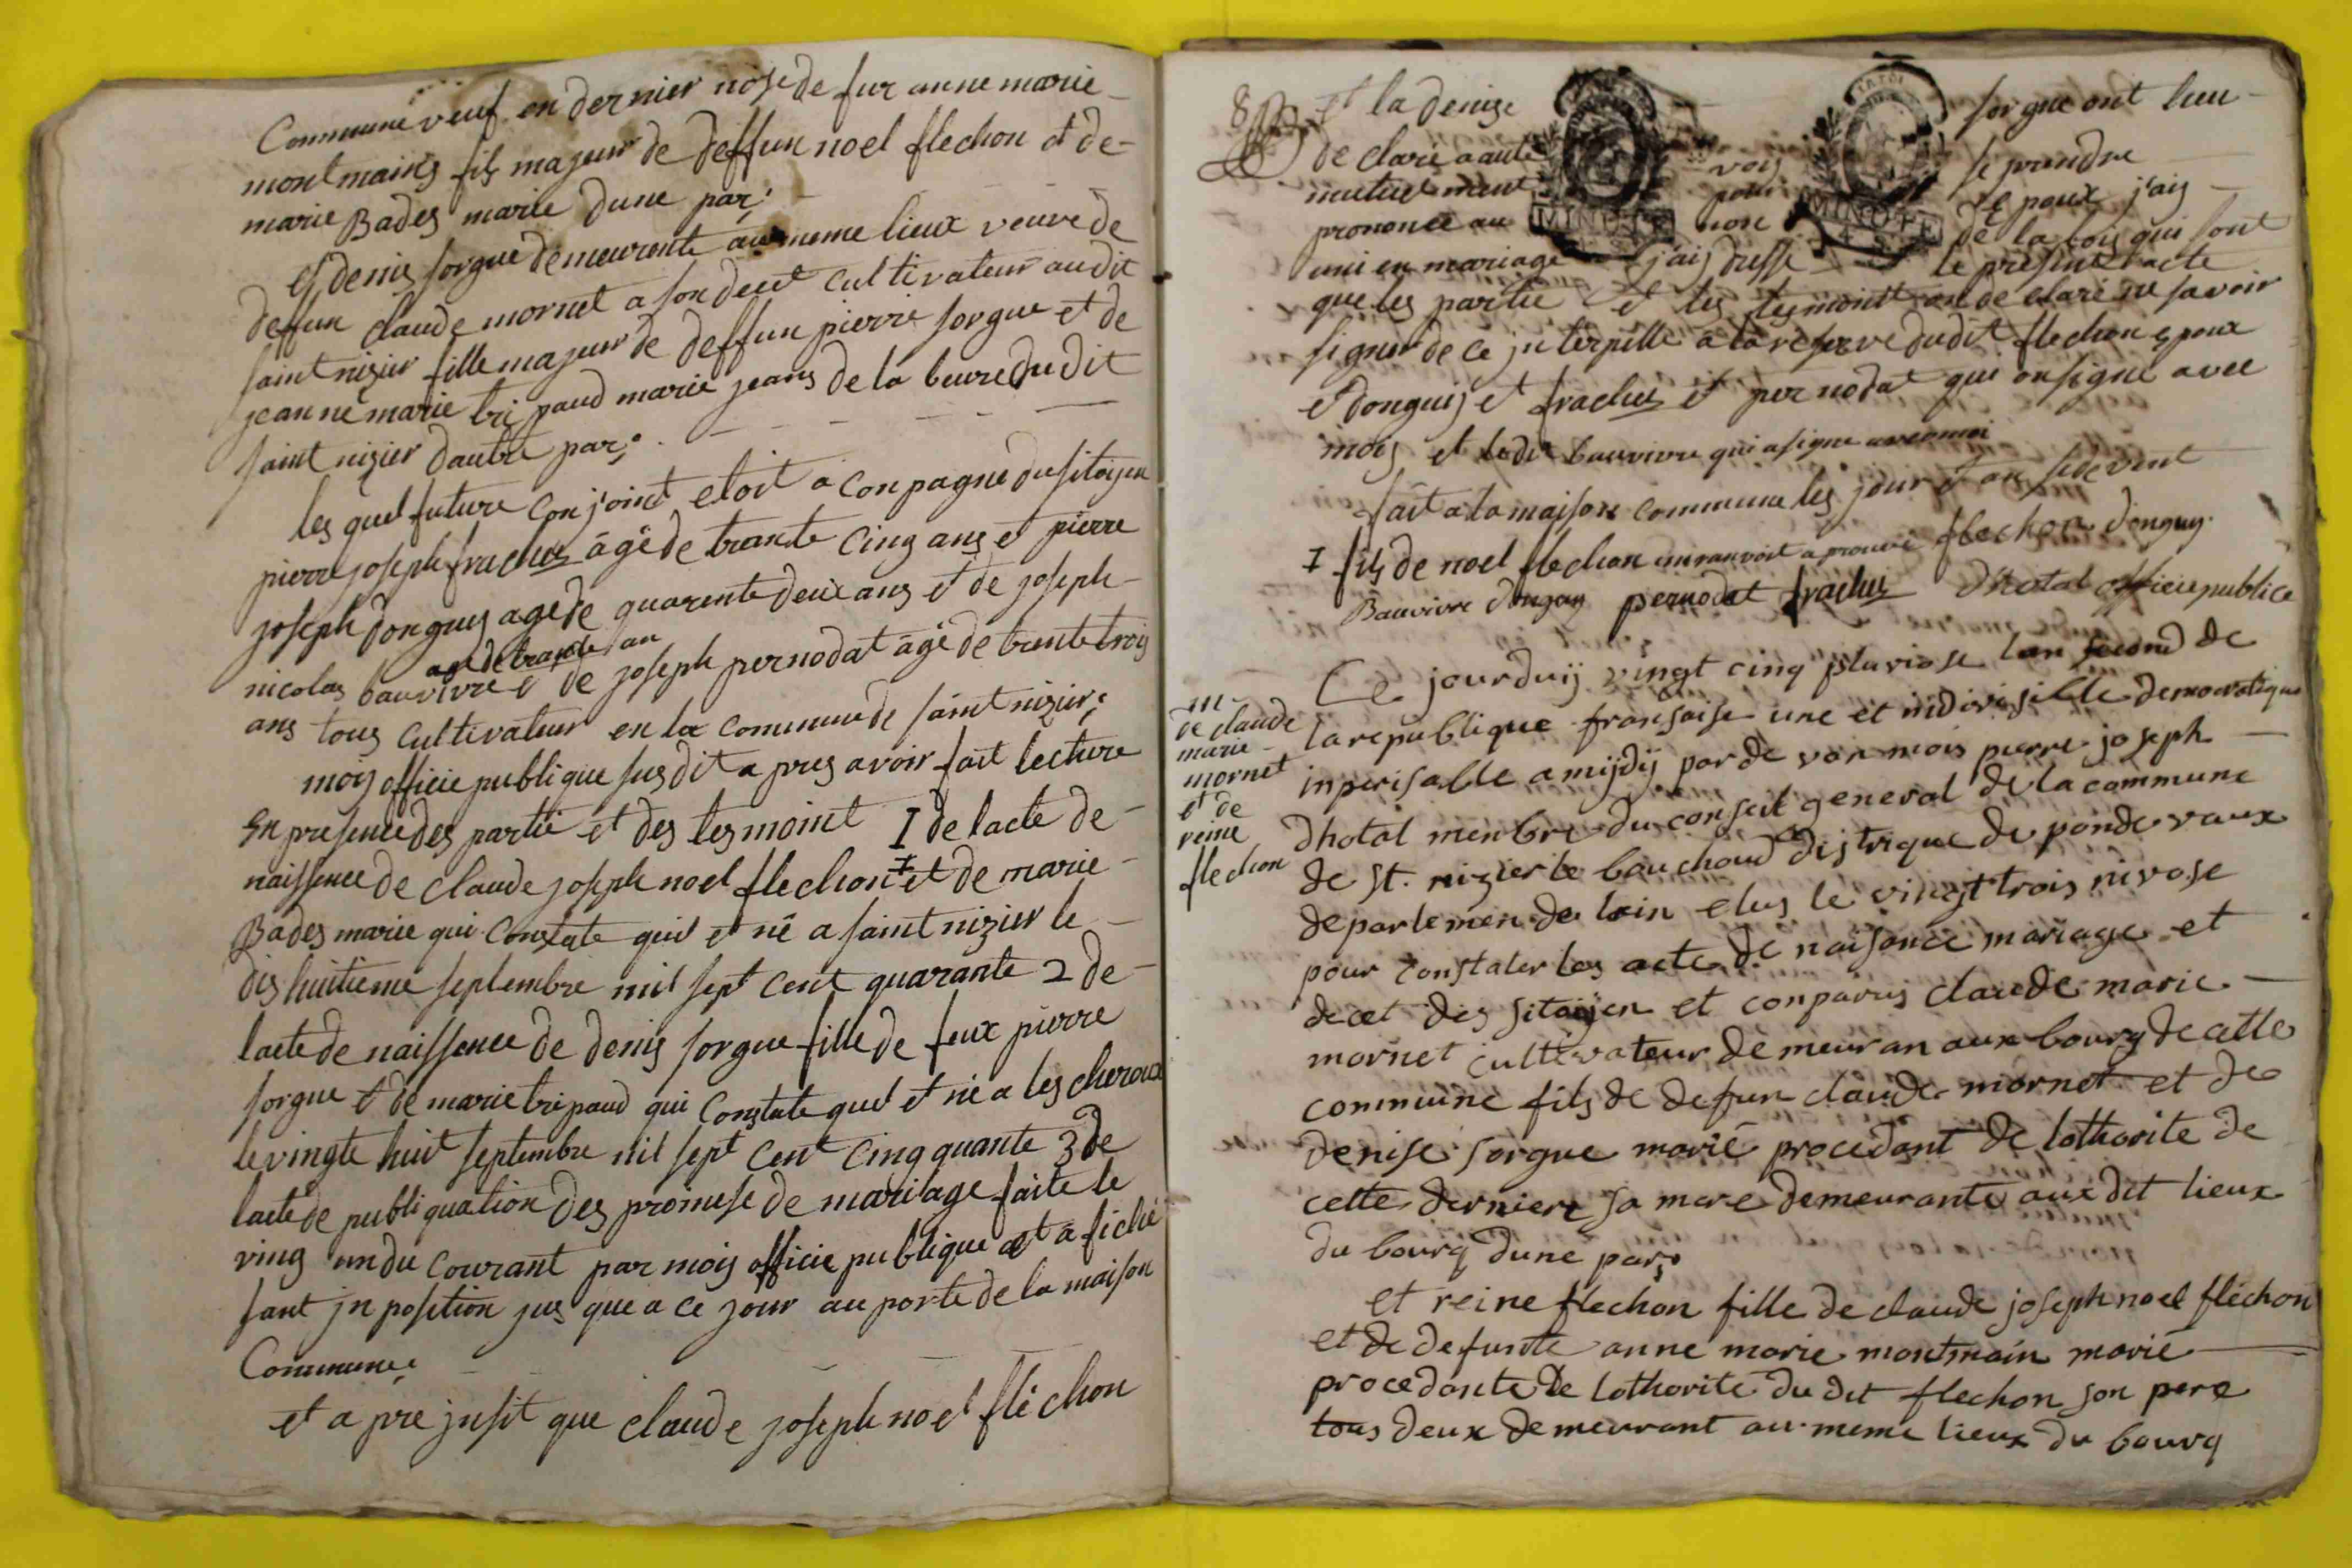 Commune veuf en dernier nose de fue anne marie
montmains fils majeur de deffun noel flechon et de
marie Bades marie dune par;
et denis sorgue demeurente au meme lieux veuve de
deffun claude mornet a son deces cultivateur audit
saint nizier fille majeur de deffun pierre sorgue et de
jeanne marie tripaud marie jeans de la beuvre du dit
saint nizier dautre par;
les quel future conjoint etoit a conpagne du sitoyen
pierre joseph frachus âgé de trante cinq ans et pierre
joseph donguy age de quarente deux ans et de joseph
age de trante an
nicolas bauvivre et de joseph pernodat âgé de trente trois
ans tous cultivateur en la commune de saint nizier;
mois officie publique susdit a pres avoir fait lecture
en presence des partie et des tesmoint I de lacte de
naissence de claude joseph noel flechon I et de marie
Bades marie qui constate quil et né a saint nizier le
dis huitieme septembre mil sept cent quarante 2 de
lacte de naissence de denis sorgue fille de feux pierre
sorgue et de marie tripaud qui constate quel et né a les cheroux
le vingte huit septembre mil sept cent cinq quante 3 de
lacte de publiquation des promese de mariage faite le
ving un du courant par mois officie publique et afiché
sant jnposition jus que a ce jour au porte de la maison
Commune;
et a pre jnsit que claude joseph noel fléchon
8
et la denise sorgue ont lieu
de claré a aute vois se prendre
mutuelment pour epoux j'ais
prononcé au non de la lois qui sont
MINUTE
MINUTE
uni en mariage j'ais dressé le present acte
que les partie et les tesmoint on de claré ne savoir
signer de ce jnterpellé a la reserve dudit flechon epoux
et donguij et frachus et pernodat qui on signé avec
mois et ledit bauvivre qui a signe avec moi
fait a la maison commune les jour et an sidevent
I fils de noel flechon un ranvoit a prouvé flechon donguy
Bauvivre donguy pernodat frachus Dhotal officie publice
m
de claude
marie
mornet
et de
reine
flechon
Ce jourduij vingt cinq pluviose lan second de
la republique fransaise une et indivisible democratique
inperisable a mijdij par de van mois pierre joseph
Dhotal menbre du conseil general de la commune
de st. nizier le bouchoud districque de ponde vaux
departemen de lain elus le vingt trois nivose
pour constater les acte de naisance mariage et
decet des sitoijen et conparus claude marie
mornet cultivateur de meuran aux bourg de cette
commune fils de defun claude mornet et de
denise sorgue marié procedant de lothorite de
cette derniere sa mere demeurante aux dit lieux
du bourg dune par;
et reine flechon fille de claude joseph noel fléchon
et de defunte anne marie montmain marié
procedante de lothorite du dit flechon son pere
tous deux demeurant au meme lieux du bourg